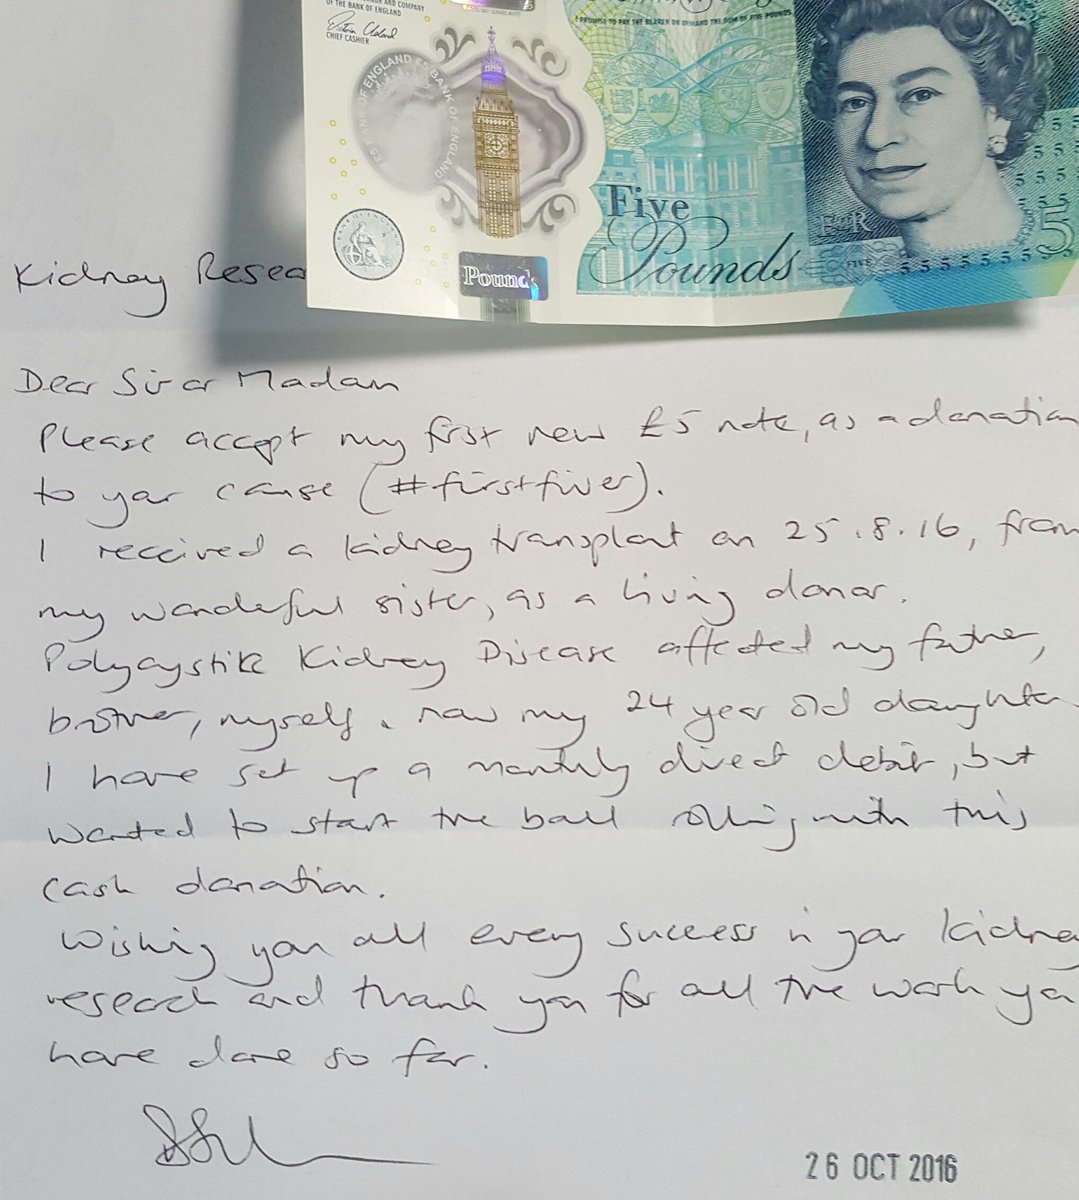 OF THE BANK OF ENGLAND
CHIEF CASHIER
I PROMISE TO PAY THE BEARER ON DEMAND THE SUM OF FIVE POUNDS
BANK OF ENGLAND £5 BANK OF ENGLAND
Five
Pounds
Pounds
5
Kidney Resea
Dear Sir or Madam
Please accept my first new £5 note, as a donation
to your cause (#firstfiver).
I received a kidney transplant on 25.8.16, from
my wonderful sister, as a living donor.
Polycystic Kidney Disease affected my father,
brother, myself & now my 24 year old daughter
I have set up a monthly direct debit, but
wanted to start the ball rolling with this
cash donation.
Wishing you all every success in your kidney
research and thank you for all the work you
have done so far.
26 OCT 2016